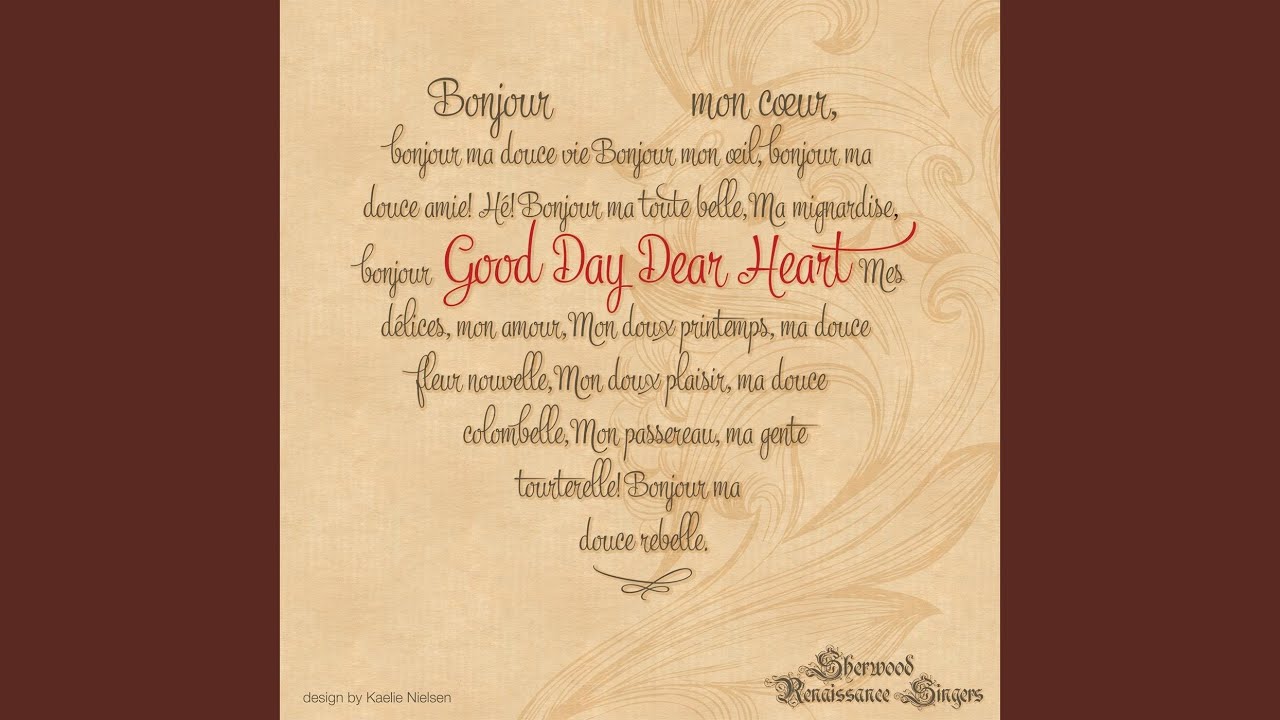 Bonjour mon cœur,
bonjour ma douce vie Bonjour mon œil, bonjour ma
douce amie! Hé! Bonjour ma toute belle, Ma mignardise,
bonjour Good Day Dear Heart Mes
délices, mon amour, Mon doux printemps, ma douce
fleur nouvelle, Mon doux plaisir, ma douce
colombelle, Mon passereau, ma gente
tourterelle! Bonjour ma
douce rebelle.
Sherwood
Renaissance Singers
design by Kaelie Nielsen